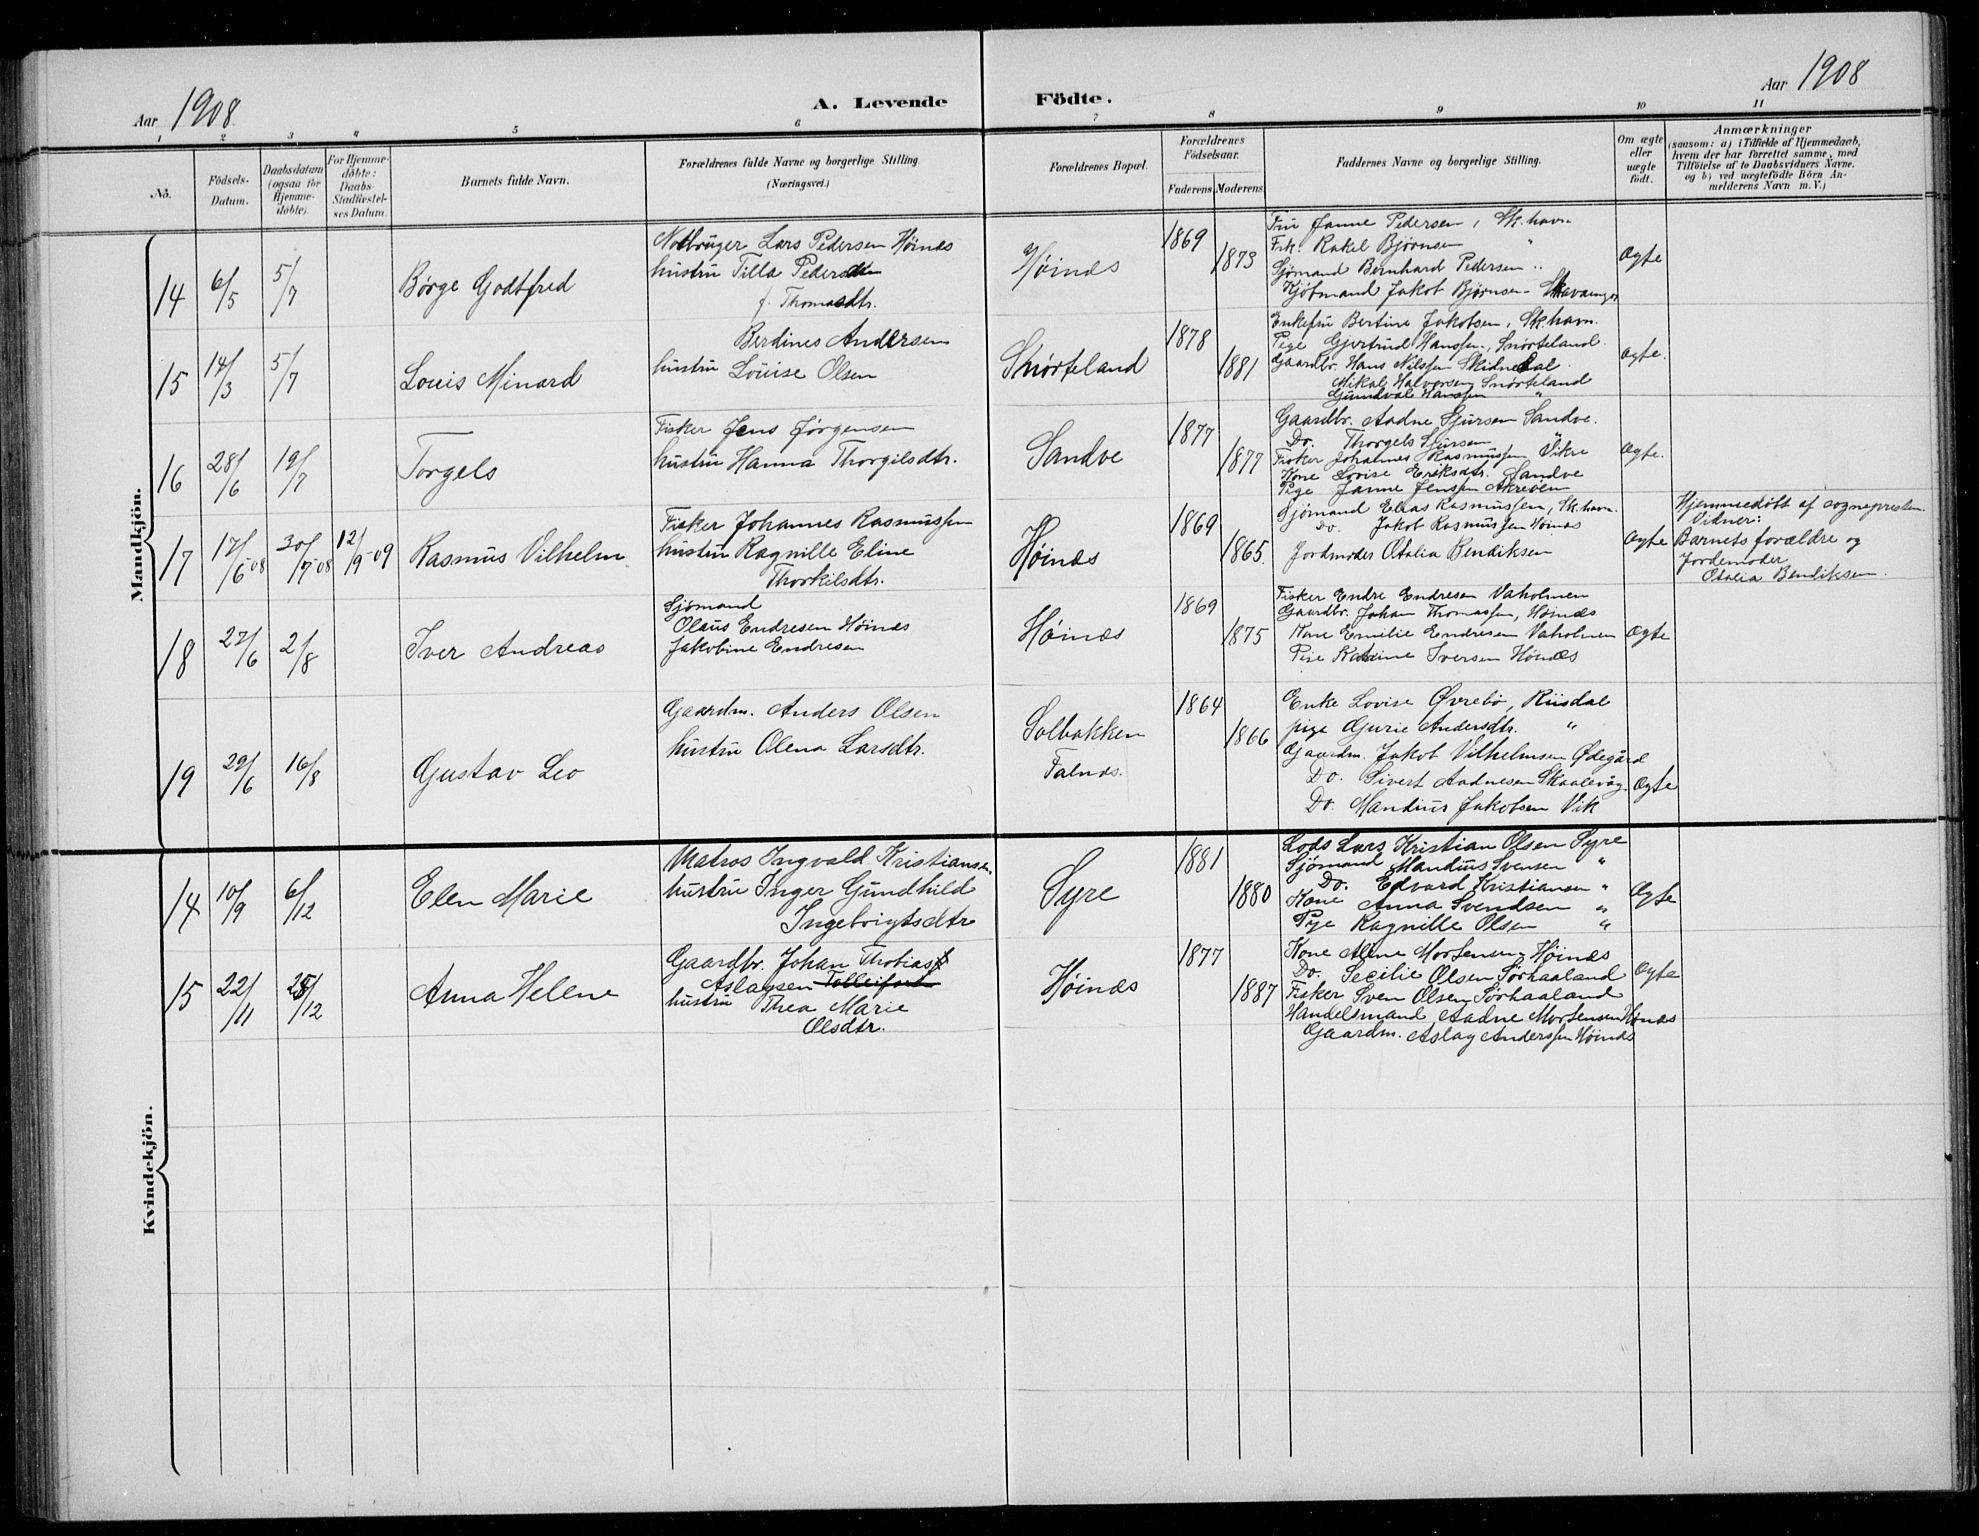 Aar 1908
A. Levende
Födte.
Aar 1908
1 2 3 4 5 6 7 8 9 10 11
No.
Födsels-Datum.
Daabsdatum (ogsaa for Hjemme-döbte).
For Hjemme-döbte: Daabs-Stadfæstel-ses Datum.
Barnets fulde Navn.
Forældrenes fulde Navne og borgerlige Stilling. (Næringsvei.)
Forældrenes Bopæl.
Forældrenes Födselsaar.
Faderens Moderens
Faddernes Navne og borgerlige Stilling.
Om ægte eller uægte födt.
Anmærkninger
(saasom: a) i Tilfælde af Hjemmedaab, hvem der har forrettet samme, med Tilföielse af to Daabsvidners Navne. og b) ved uægtefödte Börn An-melderens Navn m. V.)
Mandkjön.
14 6/5 5/7 Børge Godtfred
Notbruger Lars Pedersen Høinæs
hustru Tilla Pedersen
f. Thomasdtr.
Høinæs 1869 1873
Fru Janne Pedersen, Sk.havn
Frk. Rakel Bjørnsen "
Sjømand Bernhard Pedersen "
Kjøbmand Jakob Bjørnsen - Stavanger
Ægte
15 14/3 5/7 Louis Minard
Berdines Andersen
hustru Louise Olsen
Snørteland 1878 1881
Enkefru Bertine Jakobsen, Sk.havn.
Pige Gjertrud Hanssen, Snørteland
Gaardbr. Hans Nilssen Skidnedal
Mikal Halvorsen Snørteland
Gundval Hanssen "
Ægte.
16 28/6 19/7 Torgels
Fisker Jens Jørgensen
hustru Hanna Thorgilsdtr.
Sandve 1877 1877
Gaardbr. Aadne Sjursen Sandve.
Do. Thorgels Sjursen "
Fisker Johannes Rasmussen Vikre
Kone Lovise Eriksdtr. Sandve
Pige Janne Jenssen Akrevem
Ægte.
17 17/6-08 30/7-08 12/9-09 Rasmus Vilhelm
Fisker Johannes Rasmussen
hustru Ragnille Eline
Thorkilsdtr.
Høinæs 1869 1865.
Sjømand Elias Rasmussen, Sk.havn
Do. Jakob Rasmussen Høinæs
Jordmoder Otalia Bendiksen
Ægte
Hjemmedøbt af sognepresten
Vidner:
Barnets forældre og
Jordemoder
Otalia Bendiksen.
18 27/6 2/8 Iver Andreas
Sjømand
Olaus Endresen Høinæs
Jakobine Endresen
Høinæs 1869 1875
Fisker Endre Endresen Vaholmen
Gaardbr. Johan Thomassen, Høinæs
Kone Emilie Endresen Vaholmen
Pige Katrine Iversen Hønæs
Ægte
19 29/6 16/8 Gustav Leo
Gaardm. Anders Olsen
hustru Olena Larsdtr.
Solbakken
Falnæs.
1864 1866
Enke Lovise Øvrebø, Riisdal
pige Gurie Andersdtr. "
Gaardm. Jakob Vilhelmsen Ødegård
Do. Sivert Aadnesen Skaalevåg
Do. Mandius Jakobsen Vik
Ægte
Kvindekjön.
14 10/9 6/12 Elen Marie
Matros Ingvald Kristiansen
hustru Inger Gundhild
Ingebrigtsdtr
Syre 1881 1880
Lods Lars Kristian Olsen Syre
Sjømand Mandius Svensen "
Do. Edvard Kristiansen "
Kone Anna Svendsen "
Pige Ragnille Olsen "
Ægte
15 22/11 25/12 Anna Helene
Gaardbr. Johan Thobias
Aslagsen
hustru Thea Marie
Olsdtr.
Høinæs 1877 1887
Kone Aline Mortensen Høinæs
Do. Secilie Olsen Sørhaaland
Fisker Sven Olsen Sørhaaland
Handelsmand Aadne Mortensen Hønæs
Gaardm. Aslag Anderssen Høinæs
Ægte